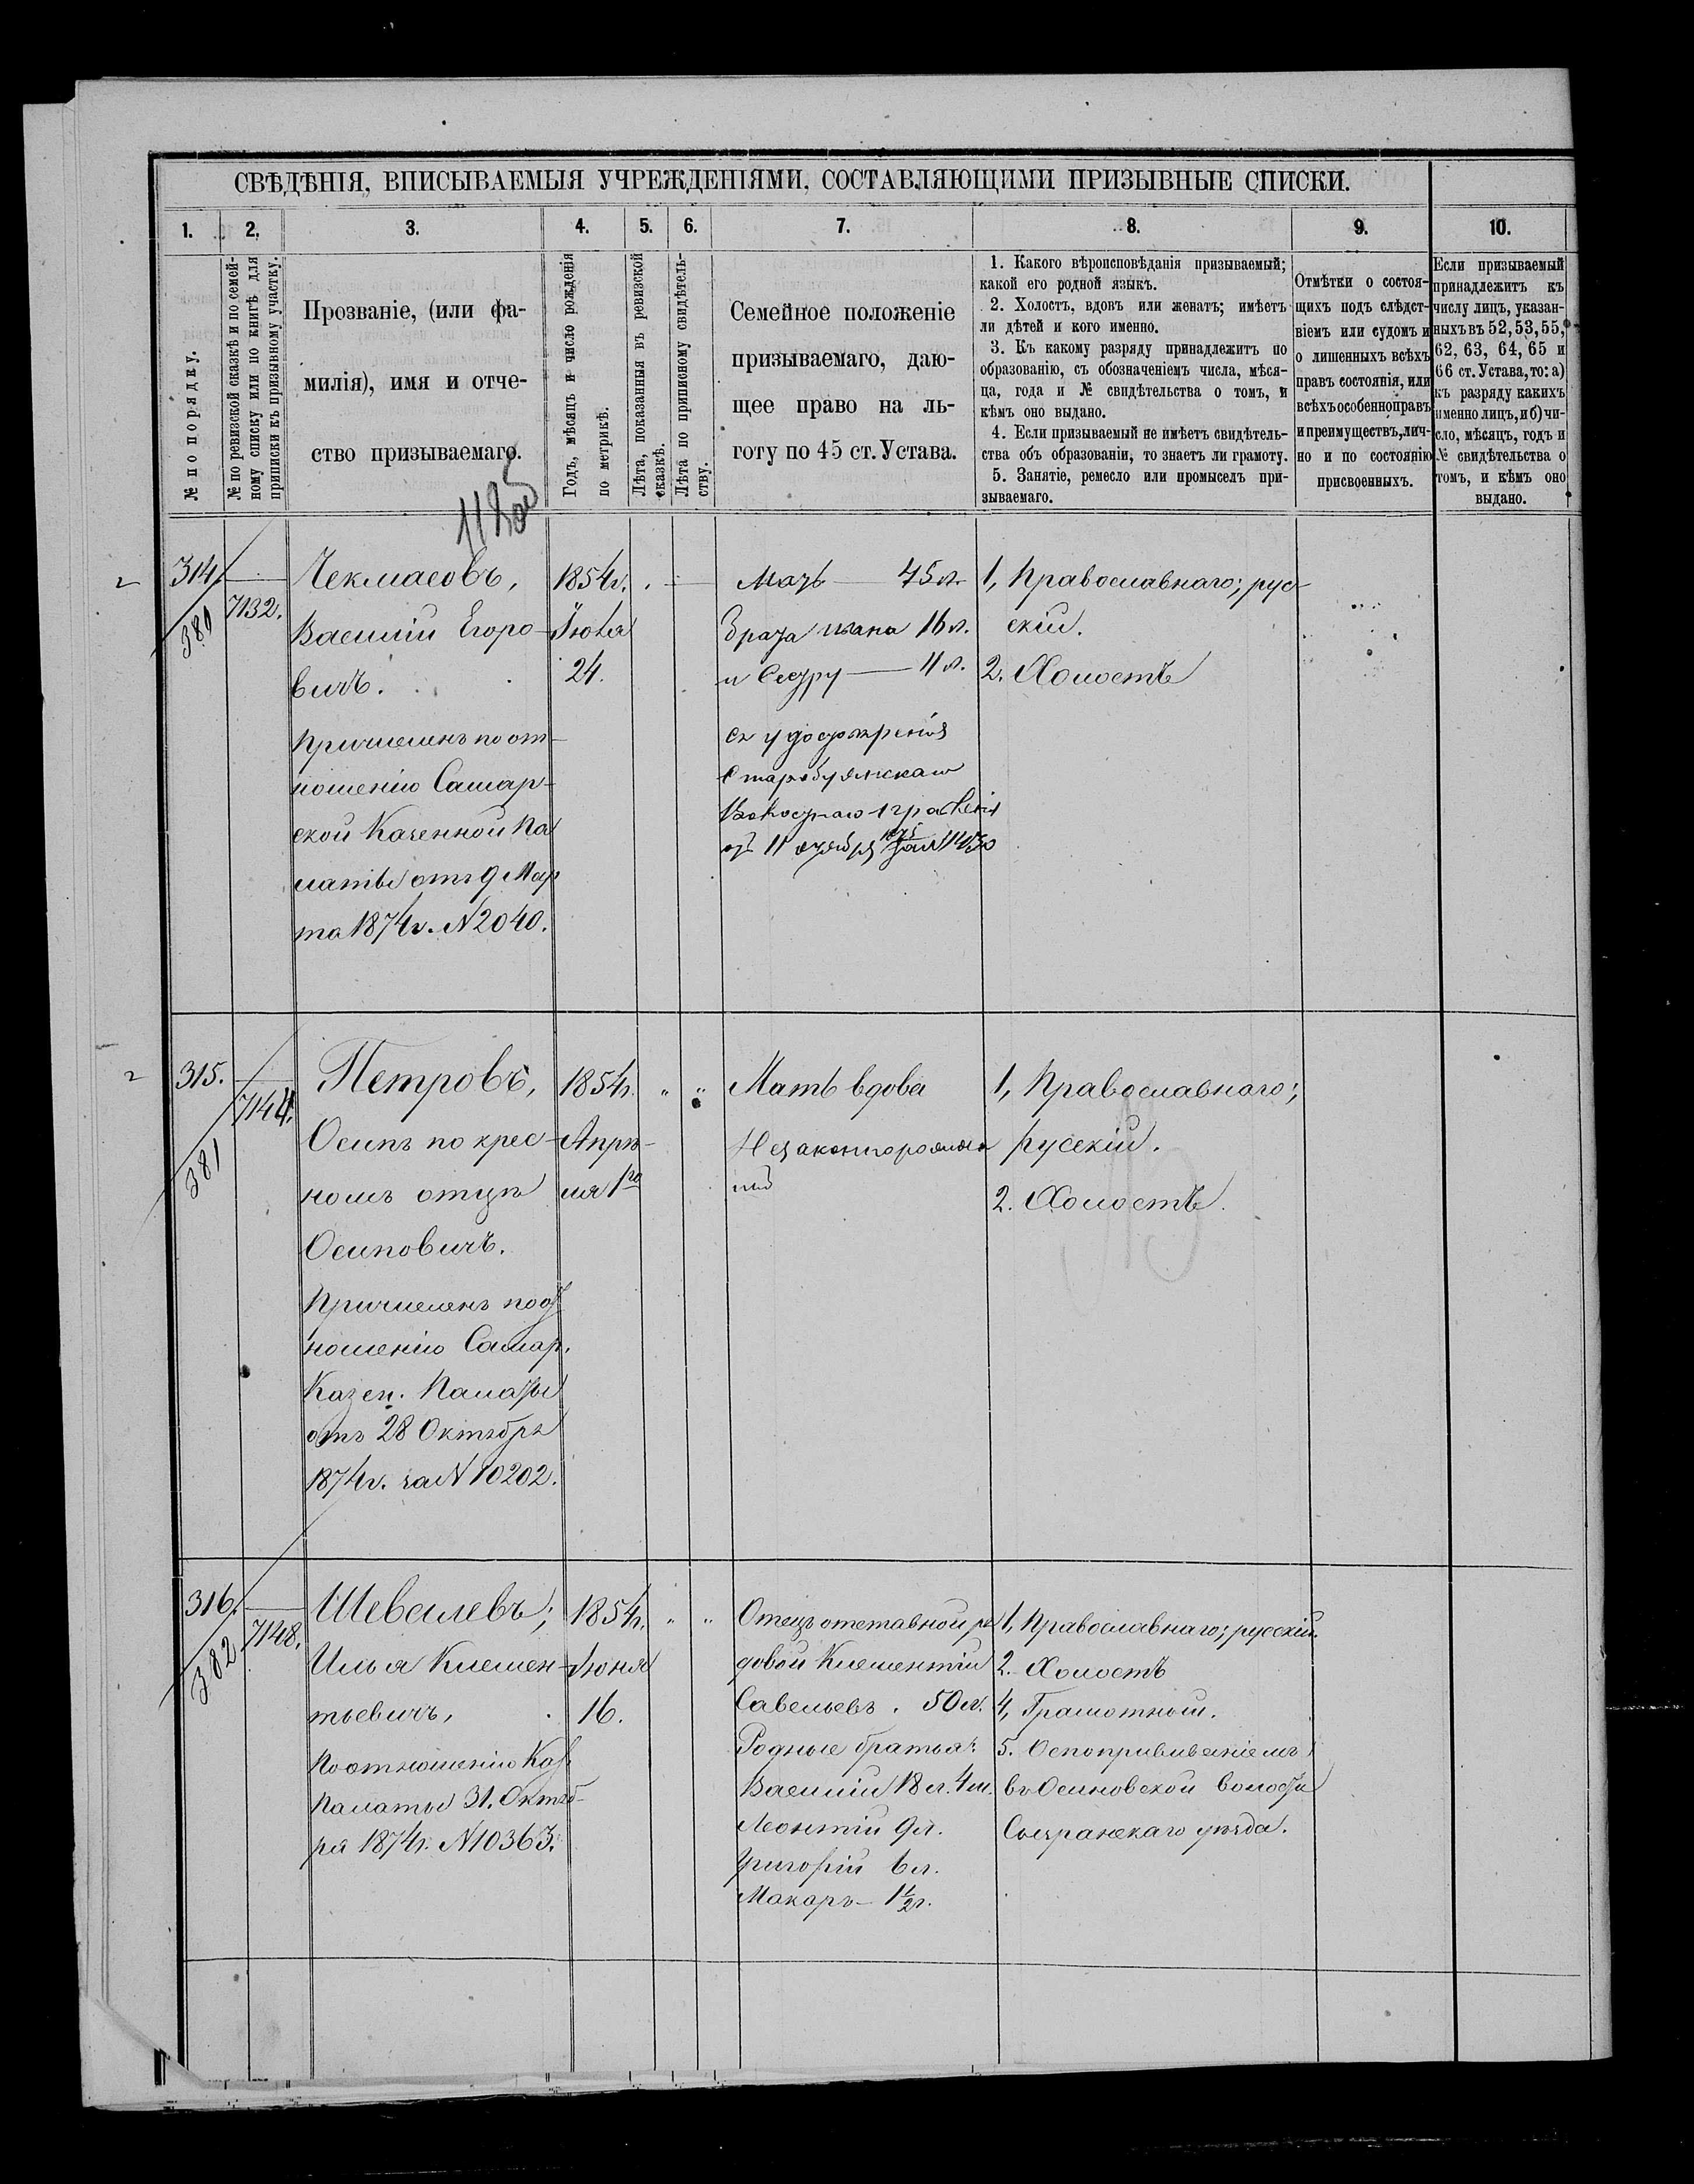 СВѢДѢНІЯ, ВПИСЫВАЕМЫЯ УЧРЕЖДЕНІЯМИ, СОСТАВЛЯЮЩИМИ ПРИЗЫВНЫЕ СПИСКИ.
1. 2. 3. 4. 5. 6. 7. 8. 9. 10.
№ по порядку.
№ по ревизской сказкѣ и по семей-
ному списку или по книгѣ для
приписки къ призывному участку.
Прозваніе, (или фа-
милія), имя и отче-
ство призываемаго.
Годъ, мѣсяцъ и число рожденія
по метрикѣ.
Лѣта, показанныя въ ревизской
сказкѣ.
Лѣта по приписному свидѣтель-
ству.
Семейное положеніе
призываемаго, даю-
щее право на ль-
готу по 45 ст. Устава.
1. Какого вѣроисповѣданія призываемый;
какой его родной языкъ.
2. Холостъ, вдовъ или женатъ; имѣетъ
ли дѣтей и кого именно.
3. Къ какому разряду принадлежитъ по
образованію, съ обозначеніемъ числа, мѣся-
ца, года и № свидѣтельства о томъ, и
кѣмъ оно выдано.
4. Если призываемый не имѣетъ свидѣтель-
ства объ образованіи, то знаетъ ли грамоту.
5. Занятіе, ремесло или промыселъ при-
зываемаго.
Отмѣтки о состоя-
щихъ подъ слѣдст-
віемъ или судомъ и
о лишенныхъ всѣхъ
правъ состоянія, или
всѣхъ особенно правъ
и преимуществъ, лич-
но и по состоянію
присвоенныхъ.
Если призываемый
принадлежитъ къ
числу лицъ, указан-
ныхъ въ 52, 53, 55,
62, 63, 64, 65 и
66 ст. Устава, то: а)
къ разряду какихъ
именно лицъ, и б) чи-
сло, мѣсяцъ, годъ и
№ свидѣтельства о
томъ, и кѣмъ оно
выдано.
314.
380
7132.
Чекмасовъ,
Василій Егоро-
вичъ.
Причисленъ по от-
ношенію Самар-
ской Казенной Па
латы отъ 9 Мар
та 1874 г. N 2040.
1854 г.
Іюля
24.
Мать — 45 л.
брата Ивана 16 л.
и — 11 л.
Волостнаго правленія
отъ 11 октября 1875 за N 1430
1, Православнаго; рус-
скій.
2. Холостъ
315.
381
7144.
Петровъ,
Осипъ по крес-
номъ отцѣ
Осиповичъ.
Причисленъ по от
ношенію Самар.
Казен. Палаты
отъ 28 Октября
1874 г. за N 10202.
1854 г.
Апрѣ-
ля 1го
" "
Мать вдова
Незаконнорожден
ный
1, Православнаго;
русскій.
2. Холостъ.
316.
382
7148.
Шевалевъ;
Илья Клемен-
тьевичъ,
По отношенію Каз.
Палаты 31. Октяб-
ря 1874 г. N 10363.
1854 г.
Іюня
16.
" "
Отецъ отставной ря
довой Клементій
Савельевъ. 50 л.
Родные братья:
Василій 18 л. 4 м.
Леонтій 9 л.
Григорій 6 л.
Макаръ — 1 1/2 г.
1, Православнаго; русскій.
2. Холостъ
4, Грамотной.
5. Оспопрививаніемъ
въ Осиновской волости
Сызранскаго уѣзда.